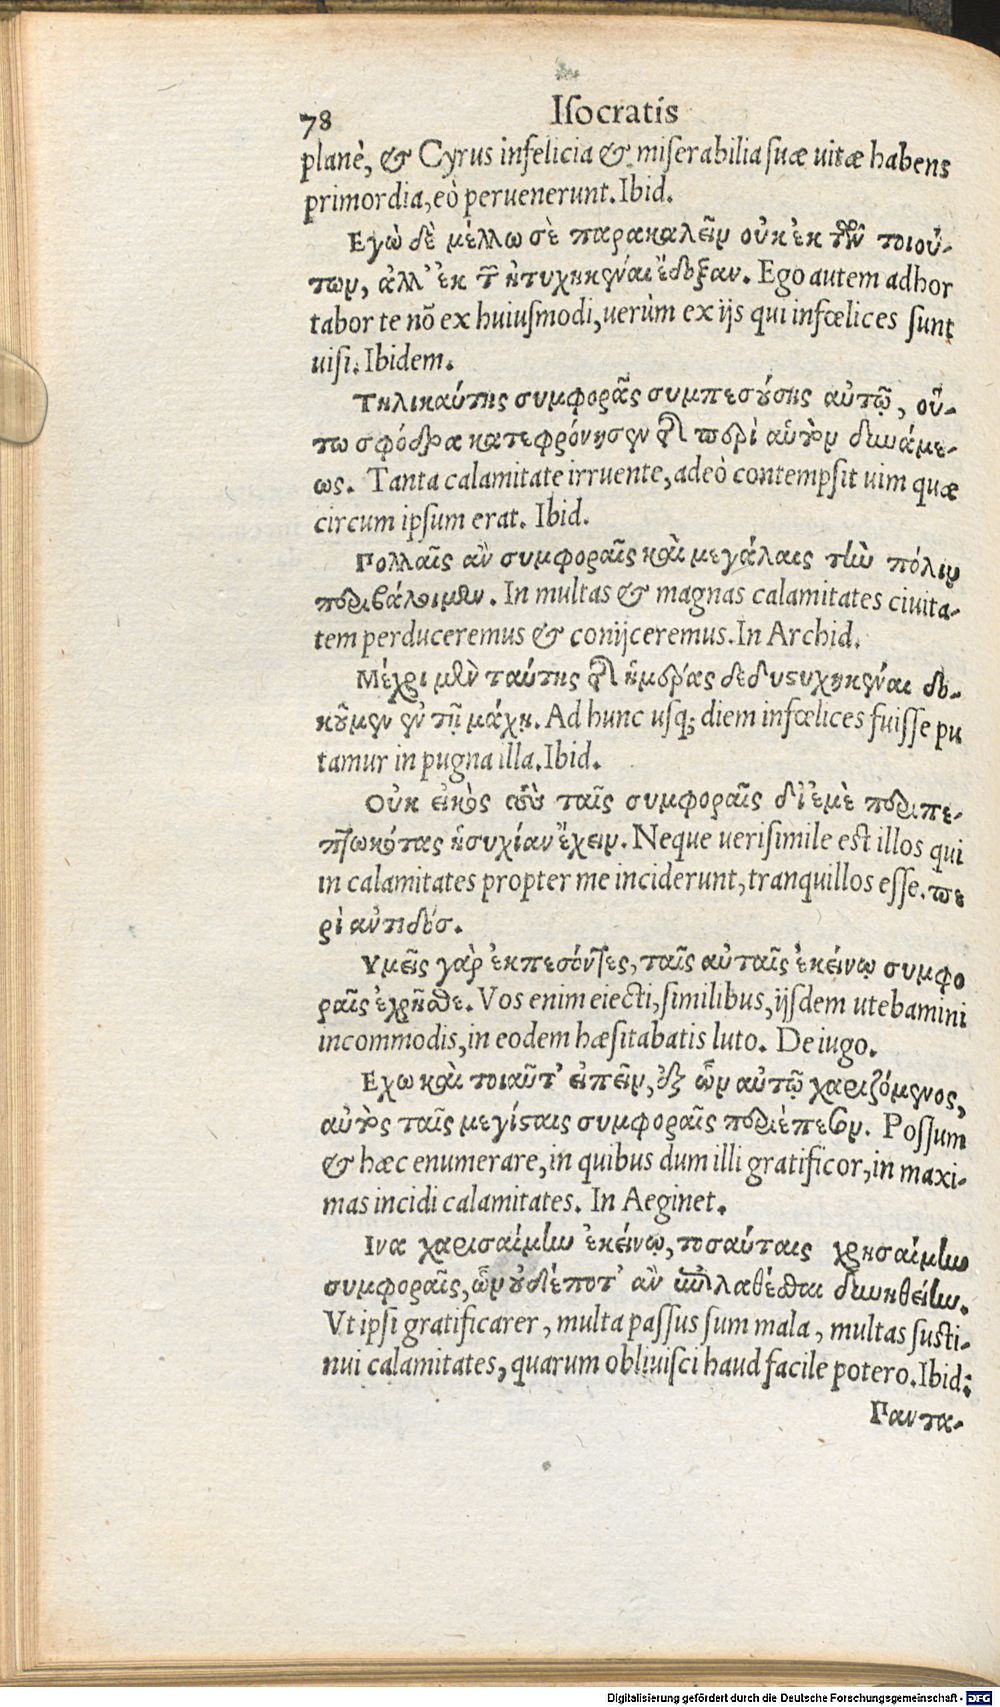 78 Iſocratis
planè, & Cyrus infelicia & miſerabilia ſuæ uitæ habens
primordia, eò peruenerunt. Ibid.
Εγὼ δὲ μέλλω σὲ παρακαλεῖν οὐκ ἐκ τῶν τοιού-
των, ἀλλ' ἐκ τῶν ἠτυχηκέναι ἔδοξαν. Ego autem adhor
tabor te nõ ex huiuſmodi, uerùm ex ijs qui infœlices ſunt
uiſi. Ibidem.
Τηλικαύτης συμφορᾶς συμπεσούσης αὐτῷ, οὕ-
τω σφόδρα κατεφρόνησεν τῆς περὶ αὑτὸν δυνάμε-
ως. Tanta calamitate irruente, adeò contempſit uim quæ
circum ipſum erat. Ibid.
Πολλαῖς ἂν συμφοραῖς καὶ μεγάλαις τὴν πόλιν
περιβάλοιμεν. In multas & magnas calamitates ciuita-
tem perduceremus & conijceremus. In Archid.
Μέχρι μὲν ταύτης τῆς ἡμέρας δεδυστυχηκέναι δο-
κοῦμεν ἐν τῇ μάχῃ. Ad hunc uſq; diem infœlices fuiſſe pu
tamur in pugna illa. Ibid.
Οὐκ εἰκὸς τοὺς ταῖς συμφοραῖς δι' ἐμὲ περιπε-
πτωκότας ἡσυχίαν ἔχειν. Neque ueriſimile eſt illos qui
in calamitates propter me inciderunt, tranquillos eſſe. πε
ρὶ ἀντιδόσ.
Υμεῖς γὰρ ἐκπεσόντες, ταῖς αὐταῖς ἐκείνῳ συμφο
ραῖς ἐχρῆσθε. Vos enim eiecti, ſimilibus, ijſdem utebamini
incommodis, in eodem hæſitabatis luto. De iugo.
Εχω καὶ τοιαῦτ' εἰπεῖν, ἐξ ὧν αὐτῷ χαριζόμενος,
αὐτὸς ταῖς μεγίσταις συμφοραῖς περιέπεσον. Poſſum
& hæc enumerare, in quibus dum illi gratificor, in maxi-
mas incidi calamitates. In Aeginet.
Ινα χαρισαίμην ἐκείνῳ, τοσαύταις χρησαίμην
συμφοραῖς, ὧν οὐδέποτ' ἂν ἐπιλαθέσθαι δυνηθείην.
Vt ipſi gratificarer, multa paſſus ſum mala, multas ſuſti-
nui calamitates, quarum obliuiſci haud facile potero. Ibid:
Παντα-
Digitalisierung gefördert durch die Deutsche Forschungsgemeinschaft - DFG